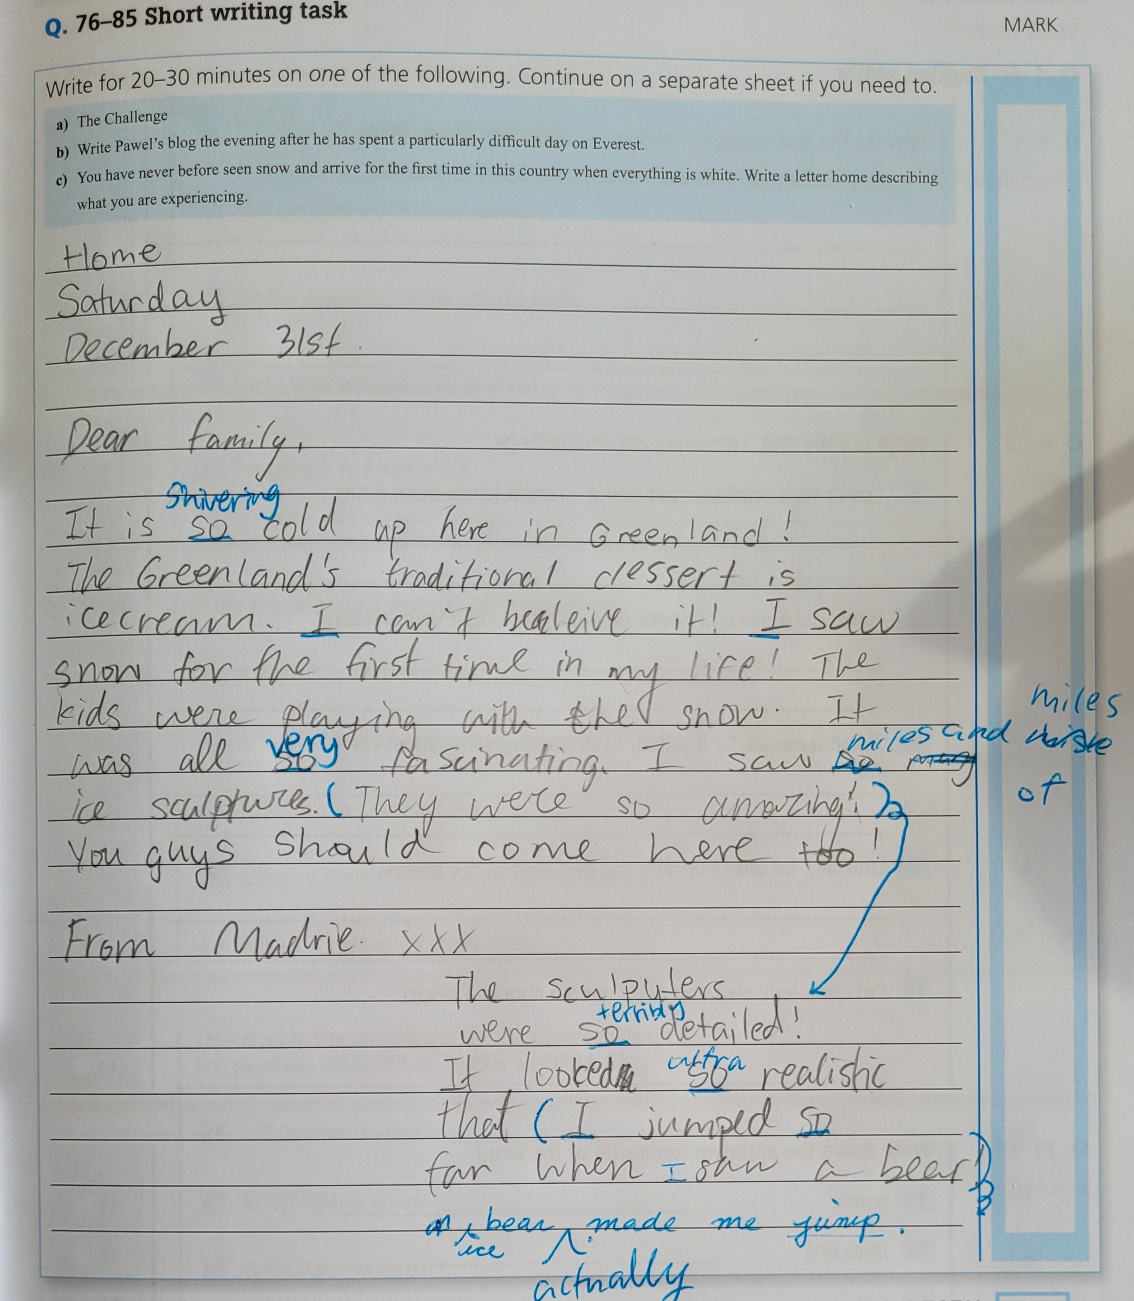 Q. 76–85 Short writing task
MARK
Write for 20–30 minutes on one of the following. Continue on a separate sheet if you need to.
a) The Challenge
b) Write Pawel's blog the evening after he has spent a particularly difficult day on Everest.
c) You have never before seen snow and arrive for the first time in this country when everything is white. Write a letter home describing
what you are experiencing.
Home
Saturday
December 31st.
Dear family,
shivering
It is so cold up here in Greenland!
The Greenland's traditional dessert is
icecream. I can't bealeive it! I saw
snow for the first time in my life! The
kids were playing with the snow. It
miles
very
miles and
was all so fascinating. I saw so many
of
ice sculptures. (They were so amazing!)
You guys should come here too!
From Madrie. xxx
The sculputers
terribly
were so detailed!
ultra
It looked so realistic
that (I jumped so
far when I saw a bear)
an bear made me jump.
ice
actually